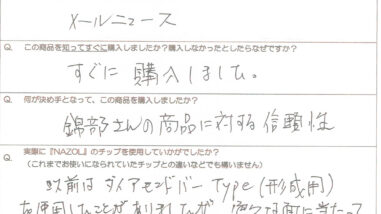 メールニュース
Q. この商品を知ってすぐに購入しましたか？購入しなかったとしたらなぜですか？
すぐに購入しました。
Q. 何が決め手となって、この商品を購入しましたか？
錦部さんの商品に対する信頼性
Q. 実際に『NAZOL』のチップを使用していかがでしたか？
（これまでお使いになられていたチップとの違いなどでも構いません）
以前はダイアモンドバーType（形成用）
を使用したことがありましたが